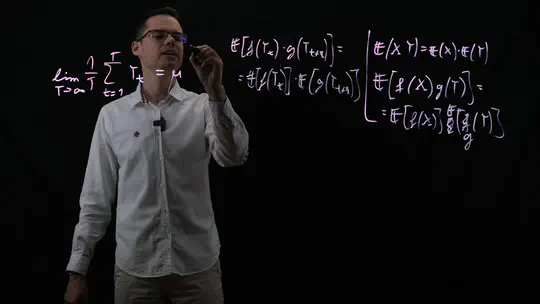 lim T→∞ 1/T ∑ t=1 T Y_t = μ
E[f(Y_t)·g(Y_t+k)] =
= E[f(Y_t)]·E(g(Y_t+k)]
E(X Y) = E(X)·E(Y)
E[f(X)g(Y)] =
= E[f(X)] E[g(Y)]
g